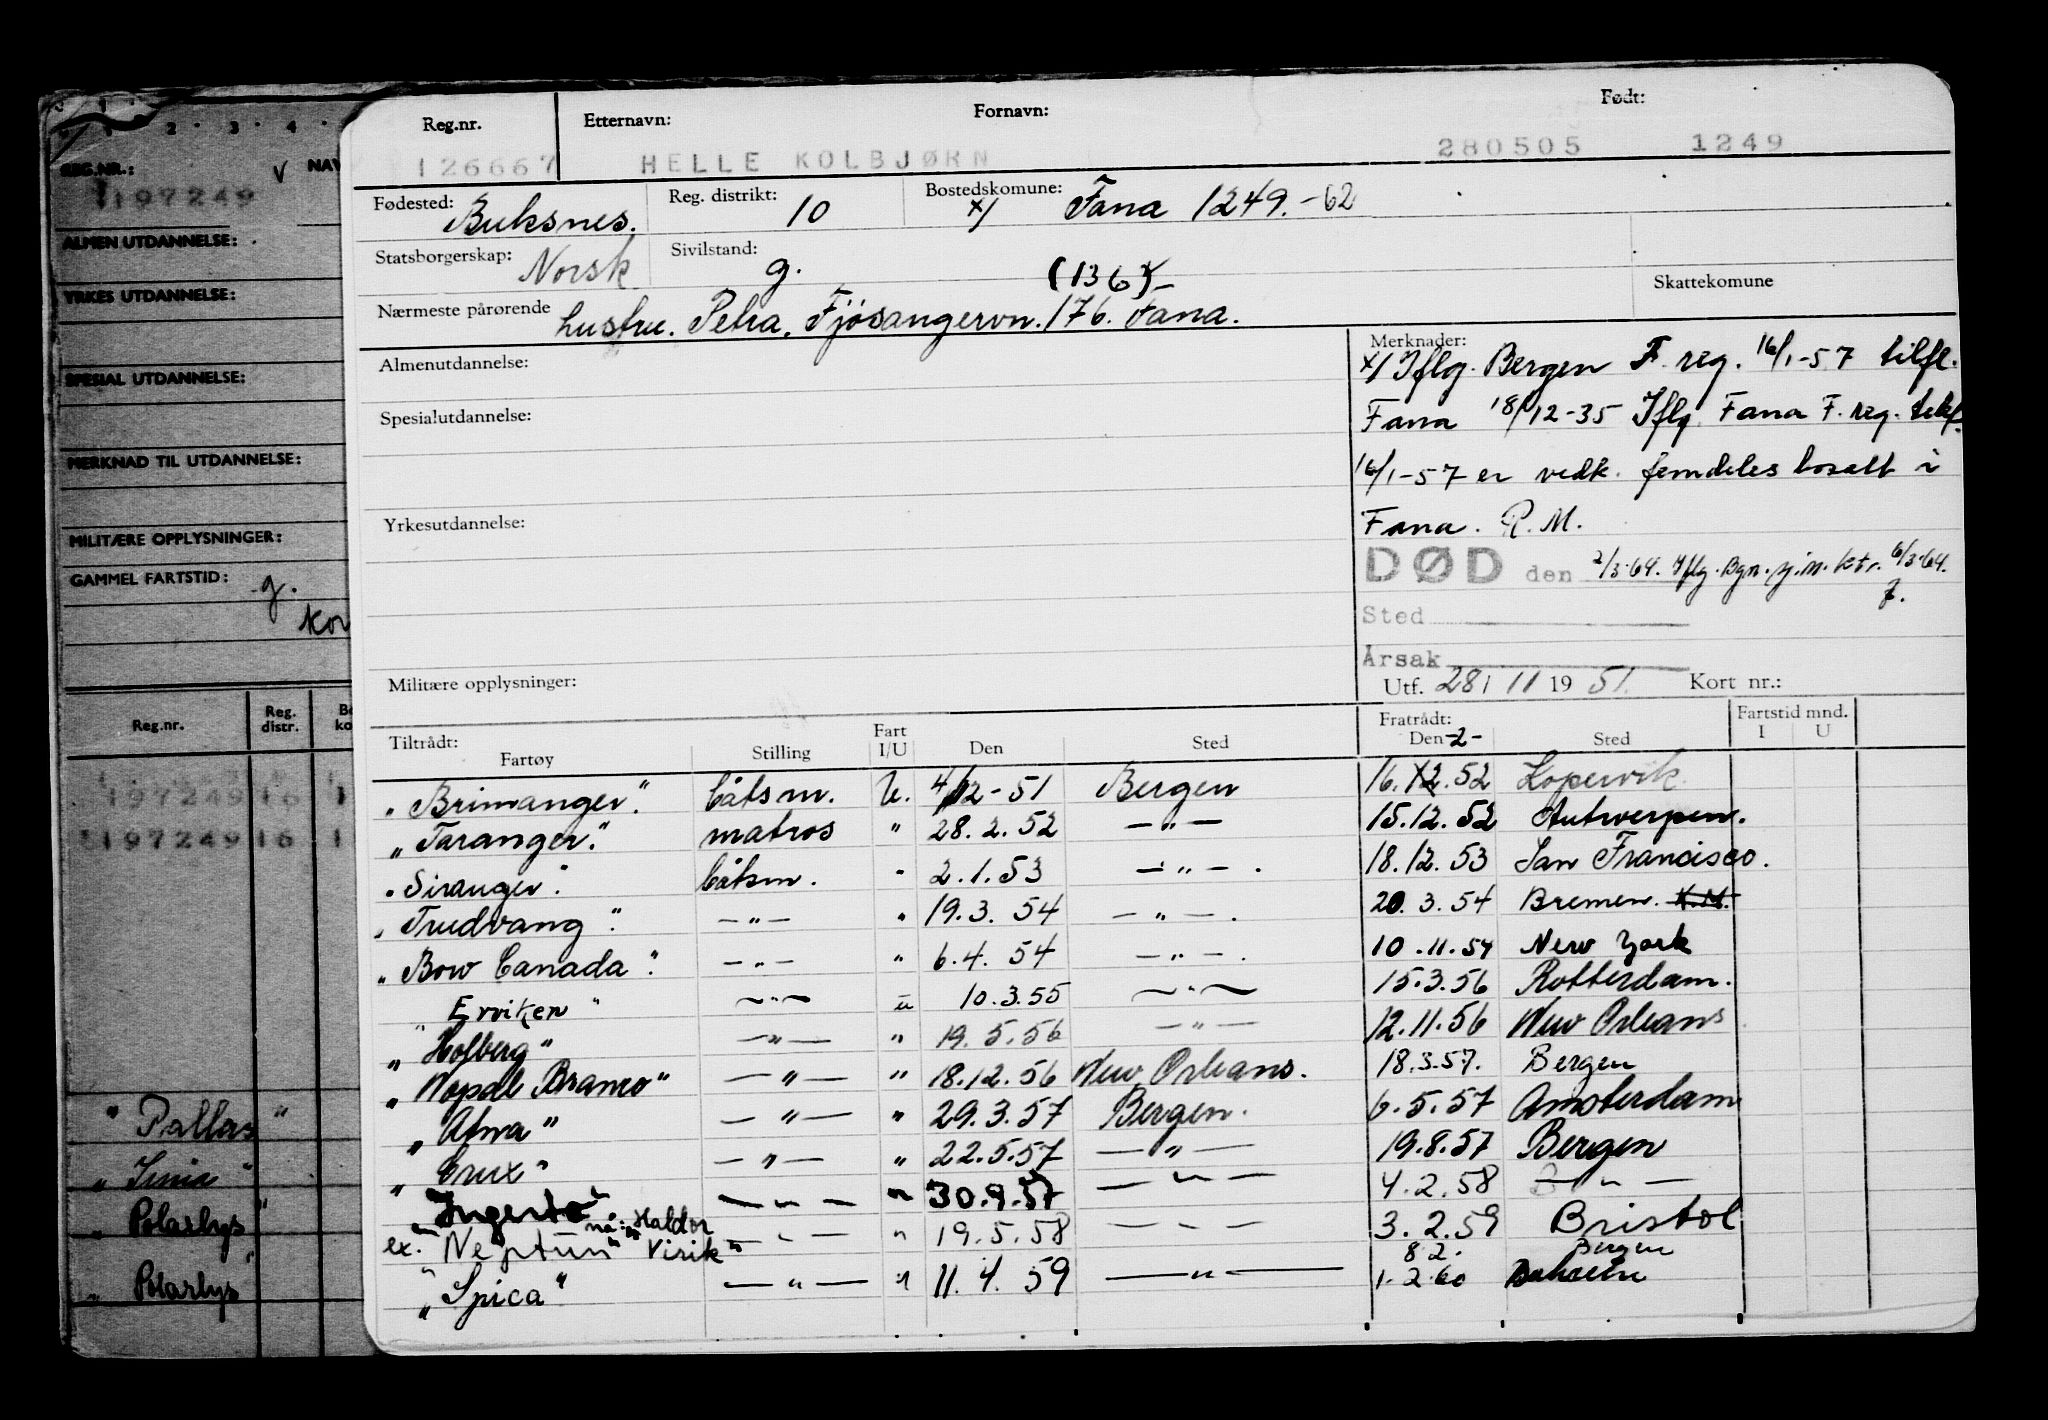 Reg.nr. Etternavn: Fornavn: Født:
126667 HELLE KOLBJØRN 280505 1249
Fødested: Buksnes. Reg. distrikt: 10 Bostedskomune: x/ Fana 1249.-62
Statsborgerskap: Norsk Sivilstand: g. (136) Skattekomune
Nærmeste pårørende hustru. Petra, Fjøsangervn. 176. Fana.
Almenutdannelse:
Spesialutdannelse:
Yrkesutdannelse:
Militære opplysninger:
Merknader:
x/ Iflg. Bergen F. reg. 16/1-57 tilfl.
Fana 18/12-35 Iflg. Fana F. reg. telf.
16/1-57 er vedk. femdeles bosatt i
Fana. R.M.
DØD den 2/3-64. Iflg. Bgn. m. ktr. 6/3-64.
Sted
Årsak
Utf. 28/11 1951. Kort nr.:
Tiltrådt: Fratrådt: Fartstid mnd.
Fartøy Stilling Fart I/U Den Sted Den -2- Sted I U
"Brimanger". båtsm. U. 4/12-51 Bergen 16.12.52 Kopervik
"Taranger". matros " 28.2.52 —"— 15.12.52 Antwerpen.
"Siranger". båtsm. " 2.1.53 —"— . 18.12.53 San Francisco.
"Trudvang". —"— " 19.3.54 —"— . 20.3.54 Bremen. K.M.
"Bow Canada". —"— " 6.4.54 —"— . 10.11.54 New York
"Erviken" —"— u 10.3.55 —"— 15.3.56 Rotterdam.
"Holberg" —"— " 19.5.56 —"— 12.11.56 New Orleans
"Nopal Branco" —"— " 18.12.56 New Orleans. 18.3.57. Bergen
"Afna" —"— " 29.3.57 Bergen. 6.5.57 Amsterdam
"Crux" —"— " 22.5.57 —"— 19.8.57 Bergen
"Ingerto" —"— " 30.9.57 —"— 4.2.58 —"—
nå: "Haldor
ex. "Neptun" Virik" —"— " 19.5.58 —"— 3.2.59 Bristol
"Spica" —"— " 11.4.59 —"— 8.2. Bergen
1.2.60 Bahrein
REG.NR.: NAV
197249 V
ALMEN UTDANNELSE:
YRKES UTDANNELSE:
SPESIAL UTDANNELSE:
MERKNAD TIL UTDANNELSE:
MILITÆRE OPPLYSNINGER:
GAMMEL FARTSTID: g.
Kor
Reg.nr. Reg. distr. Bo ko
197249 16 1
197249 16 1
"Pallas"
"Polarlys"
"Polarlys"